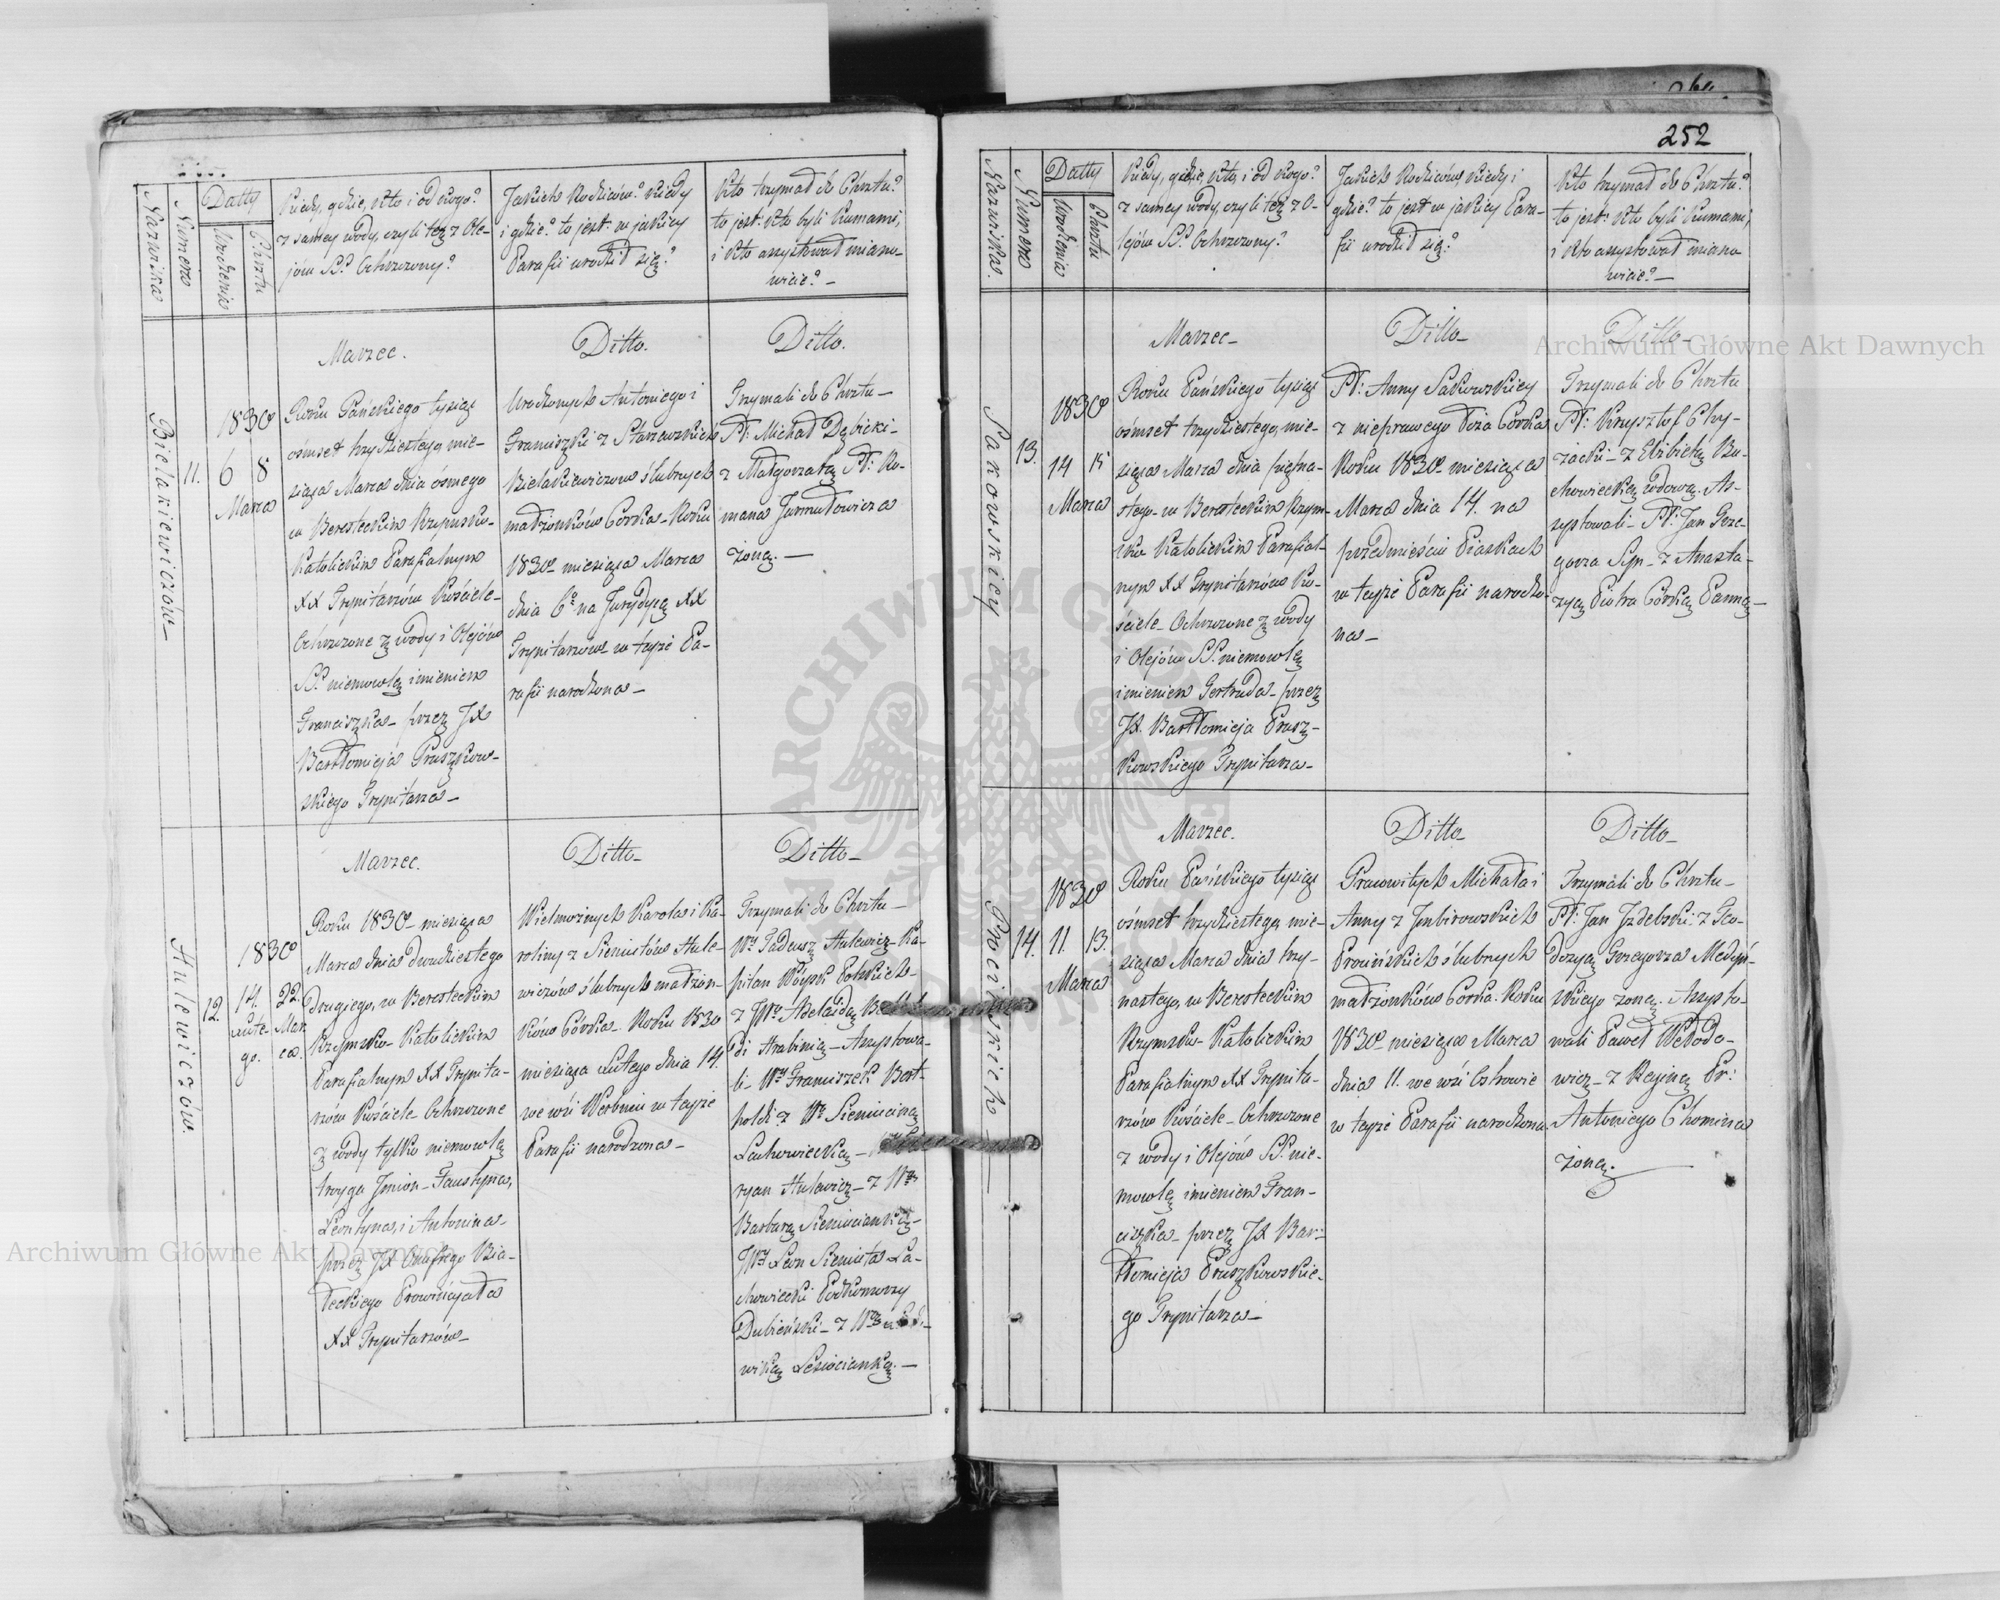 252
Nazwiska
Numera
Datty
Urodzenia
Chrztu
Kiedy, gdzie, kto i od kogo?
z samey wody, czyli też z Ole-
jów SS. Ochrzczony?
Jakich Rodziców? kiedy
i gdzie? to jest: w jakiey
Parafii urodził się?
Kto trzymał do Chrztu?
to jest: kto byli Kumami,
i kto assystował miano-
wicie? —
Bielakiewiczów —
11.
1830
6 8
Marca
Marzec.
Roku Pańskiego tysiąc
ośmset trzydziestego mie-
siąca Marca dnia ósmego
w Beresteckim Rzymsko-
Katolickim Parafialnym
XX Trynitarzów Kościele-
Ochrzczone z wody i Olejów
SS. niemowlę imieniem
Franciszka — przez JX
Bartłomieja Pruszkow-
skiego Trynitarza —
Ditto.
Urodzonych Antoniego i
Franciszki z Starzewskich
Bielakiewiczow ślubnych
małżonków Corka — Roku
1830 miesiąca Marca
dnia 6º na Jurydyce XX
Trynitarzow w teyże Pa-
rafii narodzona —
Ditto.
Trzymali do Chrztu —
PP: Michał Dębicki —
z Małgorzatą PP: Ro-
mana Jarmułowicza
żoną. —
Hulewiczów
12.
1830
14. 22.
Lute- Mar-
go. ca.
Marzec.
Roku 1830 miesiąca
Marca dnia dwudziestego
Drugiego, w Beresteckim
Rzymsko-Katolickim
Parafialnym XX Trynita-
rzów Kościele Ochrzczone
z wody tylko niemowlę
troyga Jmion — Faustyna,
Leontyna, i Antonina —
przez JX Onufrego Bia-
łeckiego Prowincyała
XX Trynitarzów —
Ditto —
Wielmożnych Karola i Ka-
roliny z Sieniutów Hule-
wiczów ślubnych małżon-
ków Córka — Roku 1830
miesiąca Lutego dnia 14.
we wsi Werbniu w teyże
Parafii narodzona —
Ditto —
Trzymali do Chrztu —
Wy Tadeusz Hulewicz Ka-
pitan Woysk Polskich —
z JWą Adelaidą
di Hrabinią — Assystowa-
li — Wy Franciszek Bert-
holdi z Wą Sieniucianą
Lachowiecką —
ryan Hulewicz — z Wną
Barbarą Sieniucianką —
JWy Leon Sieniuta La-
chowiecki Podkomorzy
Dubieński — z Wną
wiką Lesiecianką. —
Nazwiska.
Numera
Datty
Urodzenia
Chrztu
Kiedy, gdzie, kto, i od kogo?
z samey wody, czyli też z O-
lejów SS. Ochrzczony?
Jakich Rodziców kiedy i
gdzie? to jest w jakiey Para-
fii urodził się?
Kto trzymał do Chrztu?
to jest: kto byli Kumami,
i kto assystował miano-
wicie? —
Sakowskiey
13.
1830
14 15
Marca
Marzec —
Roku Pańskiego tysiąc
ośmset trzydziestego, mie-
siąca Marca dnia piętna-
stego w Beresteckim Rzym-
sko Katolickim Parafial-
nym XX Trynitarzów Ko-
ściele — Ochrzczone z wody
i Olejów SS. niemowlę
imieniem Gertruda — przez
JX. Bartłomieja Prusz-
kowskiego Trynitarza —
Ditto —
PP: Anny Sakowskiey
z nieprawego łoża Córka
Roku 1830 miesiąca
Marca dnia 14. na
przedmieściu Piaskach
w teyże Parafii narodzo-
na —
Ditto —
Trzymali do Chrztu
PP: Krzysztof Chy-
żacki — z Elżbietą Bu-
chowiecką wdową. As-
systowali — PP: Jan Grze-
gorza Syn — z Anasta-
zyą Piotra Córką Panną —
Procińskich —
14.
1830
11. 13.
Marca
Marzec.
Roku Pańskiego tysiąc
ośmset trzydziestego, mie-
siąca Marca dnia trzy-
nastego, w Beresteckim
Rzymsko-Katolickim
Parafialnym XX Trynita-
rzów Kościele — Ochrzczone
z wody i Olejów SS. nie-
mowlę imieniem Fran-
ciszka — przez JX Bar-
tłomieja Pruszkowskie-
go Trynitarza —
Ditto —
Pracowitych Michała i
Anny z Jmbirowskich
Procińskich ślubnych
małżonków Corka. Roku
1830 miesiąca Marca
dnia 11. we wsi Ostrowie
w teyże Parafii narodzona.
Ditto —
Trzymali do Chrztu —
PP: Jan Jzdebski: z Teo-
dozyą Grzegorza Medyń-
skiego żoną. Assysto-
wali Paweł Wołodo-
wicz — z Reginą Pr:
Antoniego Chomina
żoną. —
Archiwum Główne Akt Dawnych
Archiwum Główne Akt Dawnych